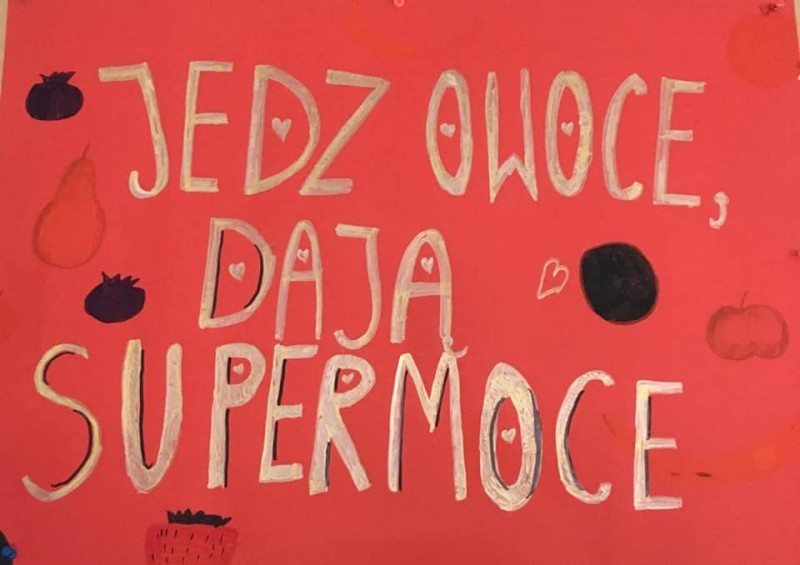 JEDZ OWOCE,
DAJĄ
SUPERMOCE